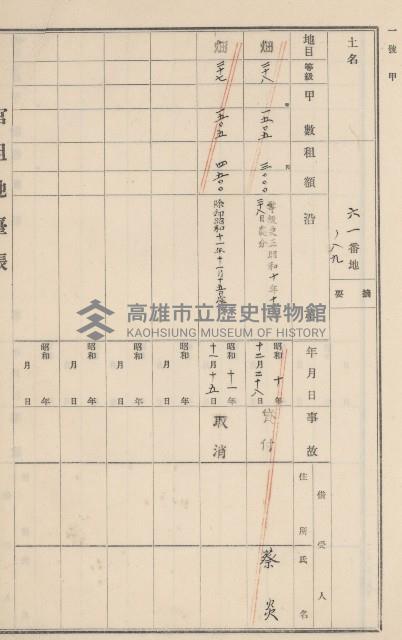 一號甲
土名
六一番地
ノ八九
摘要
地目 等級 甲數 租額 沿 年月日 事故 借受人 住所 氏名
畑 二十八 一五〇五 三〇〇〇
等級更正昭和十年十
昭和十年十二月二十八日
貸付
蔡炎
畑 二十七 一五〇五 四五〇〇
除却昭和十一年十一月十五日
昭和十一年十一月十五日
取消
昭和 年 月 日
昭和 年 月 日
昭和 年 月 日
昭和 年 月 日
官租地臺帳
高雄市立歷史博物館
KAOHSIUNG MUSEUM OF HISTORY